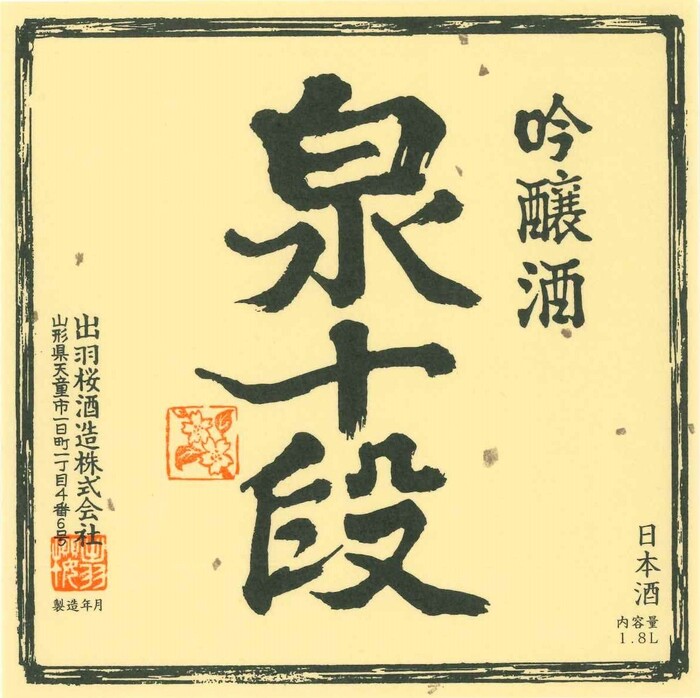 吟醸酒
泉十段
出羽桜酒造株式会社
山形県天童市一日町一丁目4番6号
出羽桜
製造年月
日本酒
内容量
1.8L